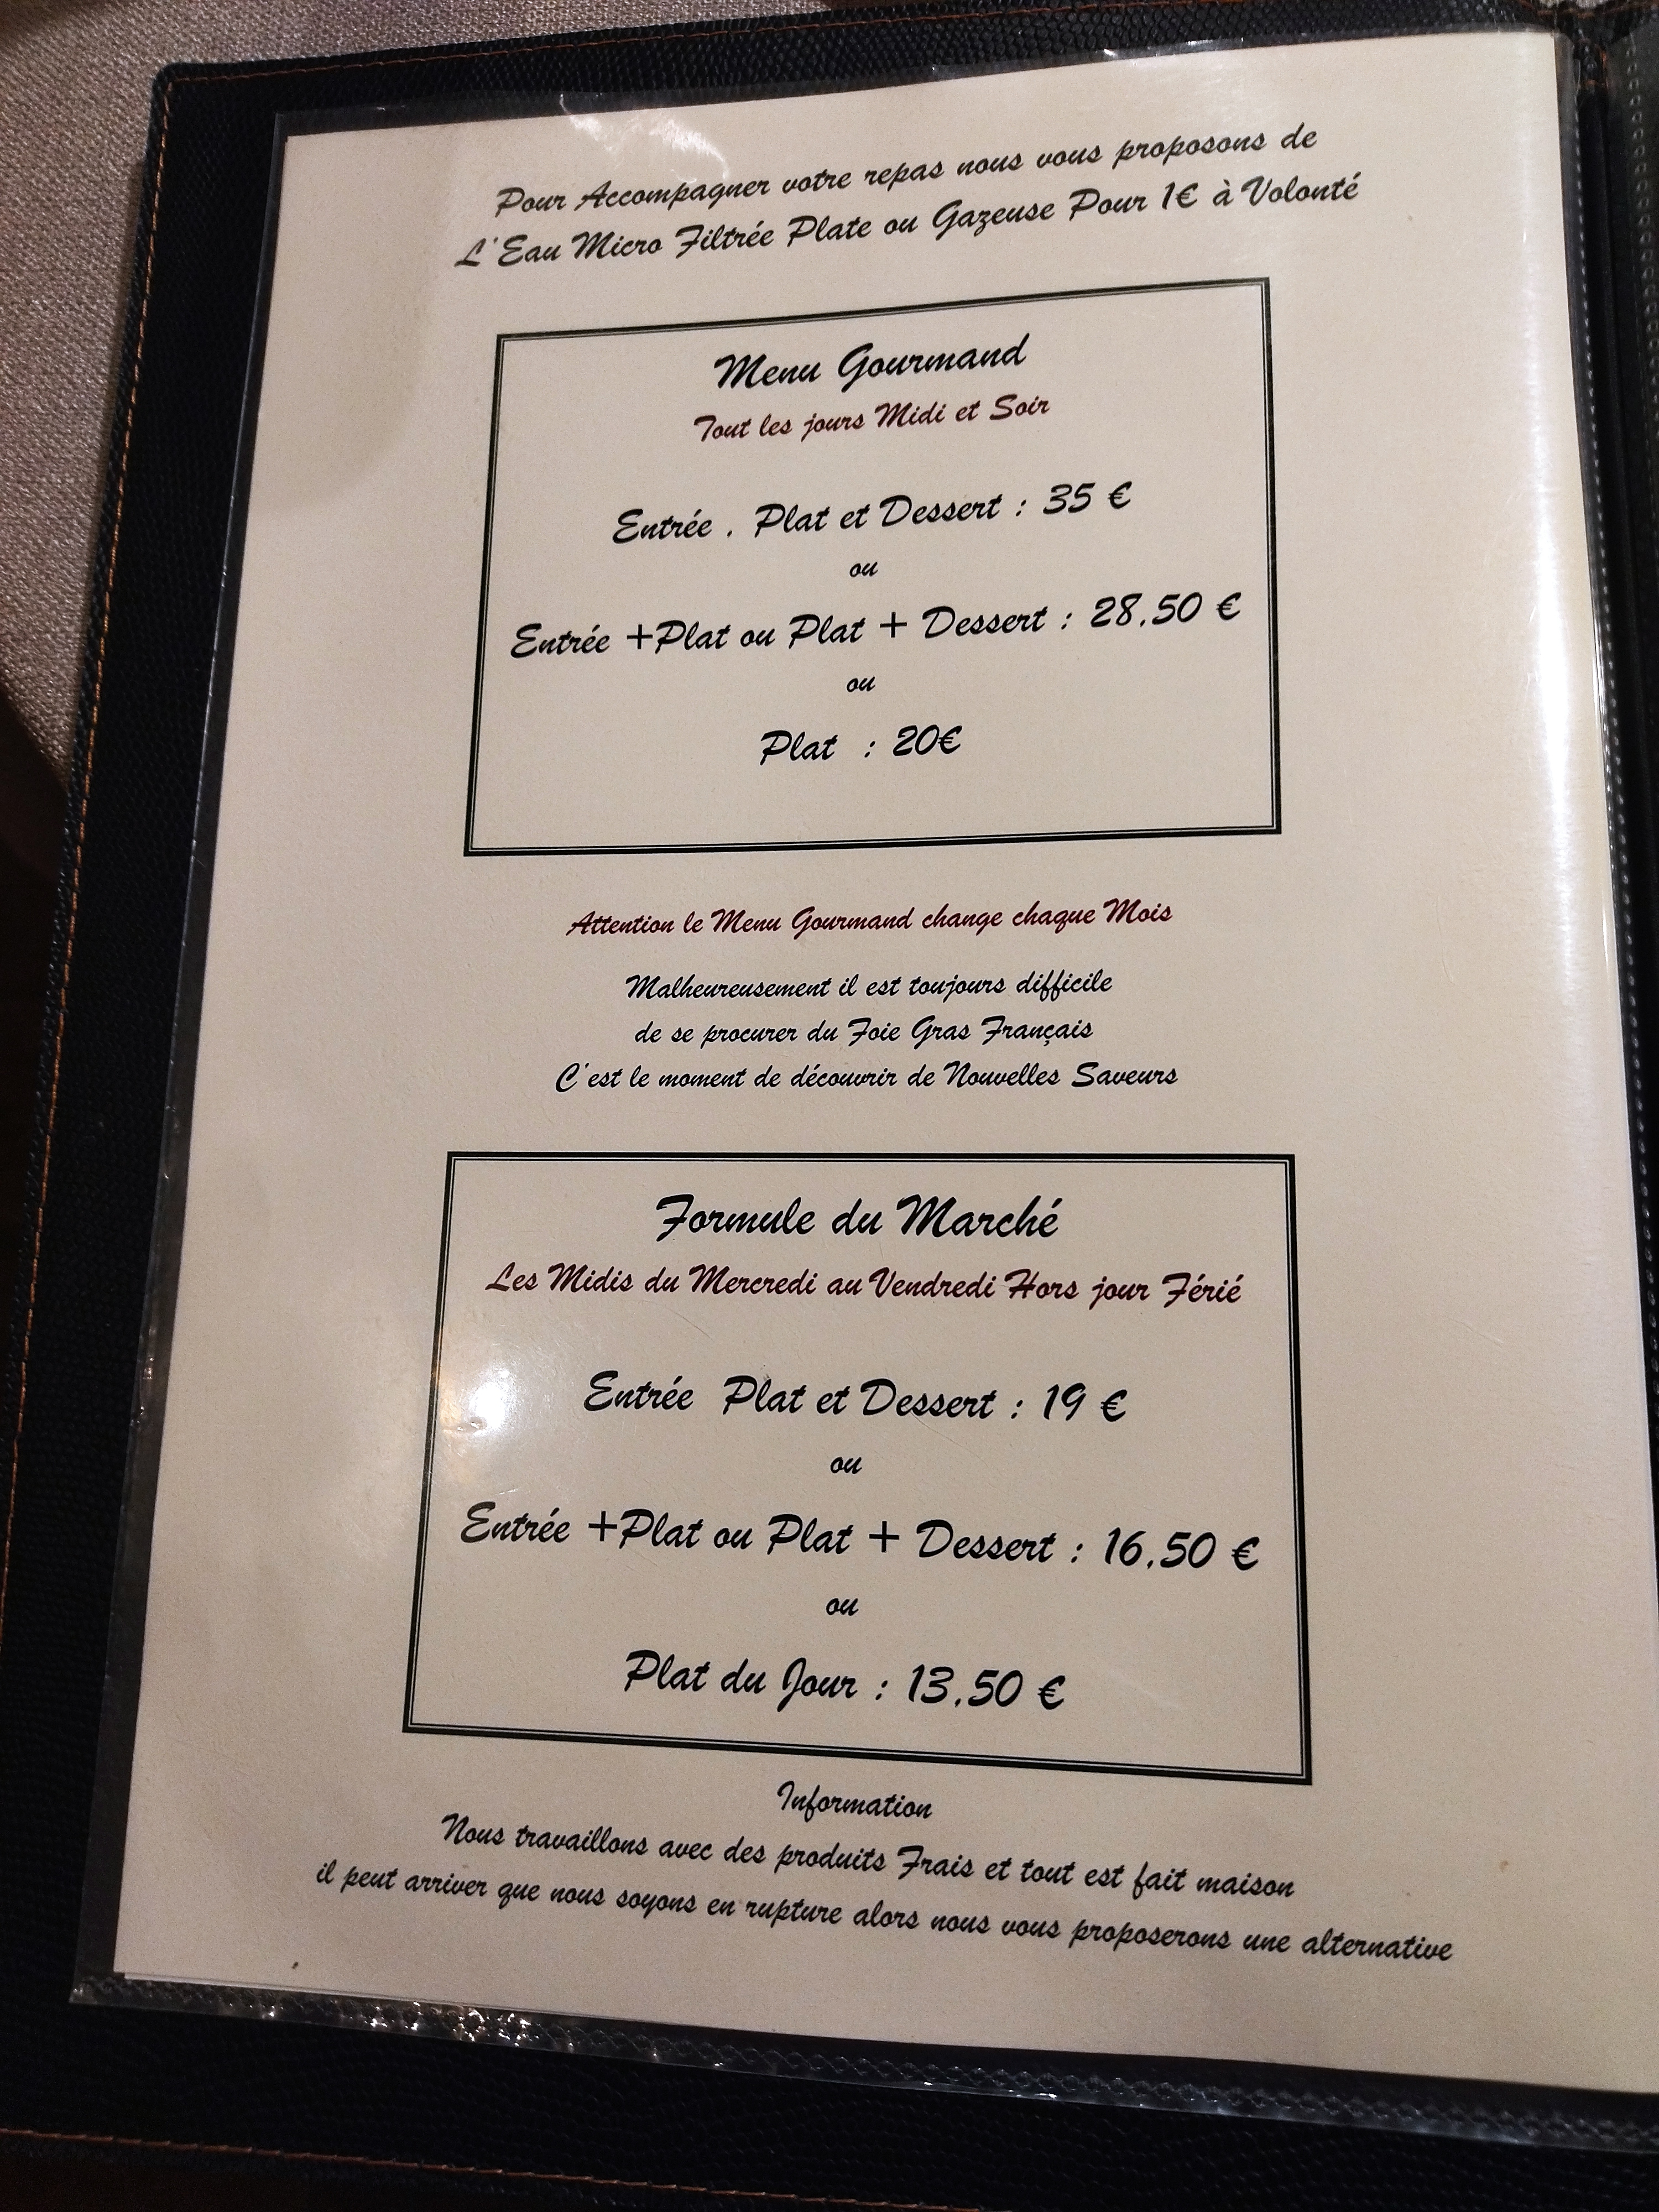 Pour Accompagner votre repas nous vous proposons de
L'Eau Micro Filtrée Plate ou Gazeuse Pour 1€ à Volonté
Menu Gourmand
Tout les jours Midi et Soir
Entrée . Plat et Dessert : 35 €
ou
Entrée +Plat ou Plat + Dessert : 28.50 €
ou
Plat : 20€
Attention le Menu Gourmand change chaque Mois
Malheureusement il est toujours difficile
de se procurer du Foie Gras Français
C'est le moment de découvrir de Nouvelles Saveurs
Formule du Marché
Les Midis du Mercredi au Vendredi Hors jour Férié
Entrée Plat et Dessert : 19 €
ou
Entrée +Plat ou Plat + Dessert : 16.50 €
ou
Plat du Jour : 13.50 €
Information
Nous travaillons avec des produits Frais et tout est fait maison
il peut arriver que nous soyons en rupture alors nous vous proposerons une alternative